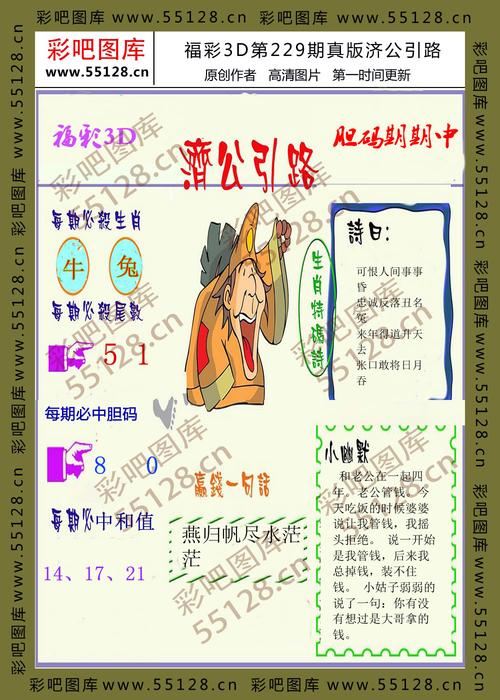 彩吧图库 www.55128.cn 彩吧图库 www.55128.cn
彩吧图库
www.55128.cn
福彩3D第229期真版济公引路
原创作者 高清图片 第一时间更新
福彩3D
濟公引路
胆码期期中
每期必殺生肖
牛 兔
每期必殺尾數
5 1
每期必中胆码
8 0
每期必中和值
14、17、21
生肖特碼詩
詩曰:
可恨人间事事
昏
忠诚反落丑名
冤
来年得道升天
去
张口敢将日月
吞
赢錢一句話
燕归帆尽水茫
茫
小幽默
和老公在一起四
年,老公管钱。今
天吃饭的时候婆婆
说让我管钱,我摇
头拒绝。 说一开始
是我管钱,后来我
总掉钱,装不住
钱。 小姑子弱弱的
说了一句:你有没
有想过是大哥拿的
钱。
彩吧图库 www.55128.cn 彩吧图库 www.55128.cn